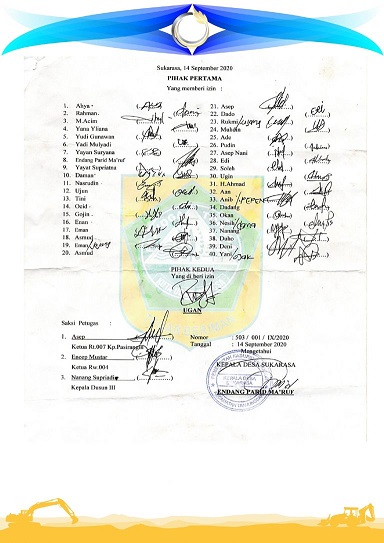 Sukarasa, 14 September 2020
PIHAK PERTAMA
Yang memberi izin :
1. Ahya
2. Rahman
3. M.Acim
4. Yana Yliana
5. Yudi Gunawan
6. Yadi Mulyadi
7. Yayan Suryana
8. Endang Parid Ma'ruf
9. Yayat Supriatna
10. Daman
11. Nasrudin
12. Ujun
13. Tini
14. Ocid
15. Gojin
16. Enan
17. Eman
18. Asmud
19. Eman
20. Asmud
21. Asep
22. Dado
23. Rukmi
24. Mahdin
25. Ade
26. Pudin
27. Asep Nani
28. Edi
29. Soleh
30. Ugin
31. H.Ahmad
32. Aan
33. Anib
34. Dadang
35. Okan
36. Nosih
37. Nanang
38. Daho
39. Deni
40. Yani
PIHAK KEDUA
Yang di beri izin
UGAN
Saksi Petugas :
1. Asep
Ketua Rt.007 Kp.Pasirangin
2. Encep Mustar
Ketua Rw.004
3. Nanang Supriadi
Kepala Dusun III
Nomor : 503 / 001 / IX/2020
Tanggal : 14 September 2020
Mengetahui
KEPALA DESA SUKARASA
ENDANG PARID MA'RUF